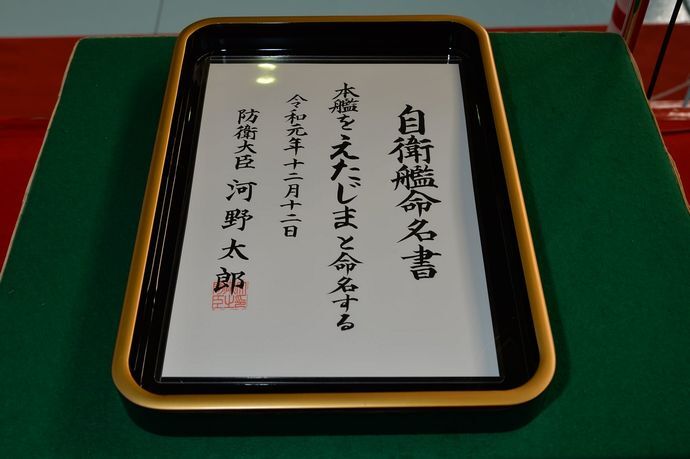 自衛艦命名書
本艦をえたじまと命名する
令和元年十二月十二日
防衛大臣 河野太郎